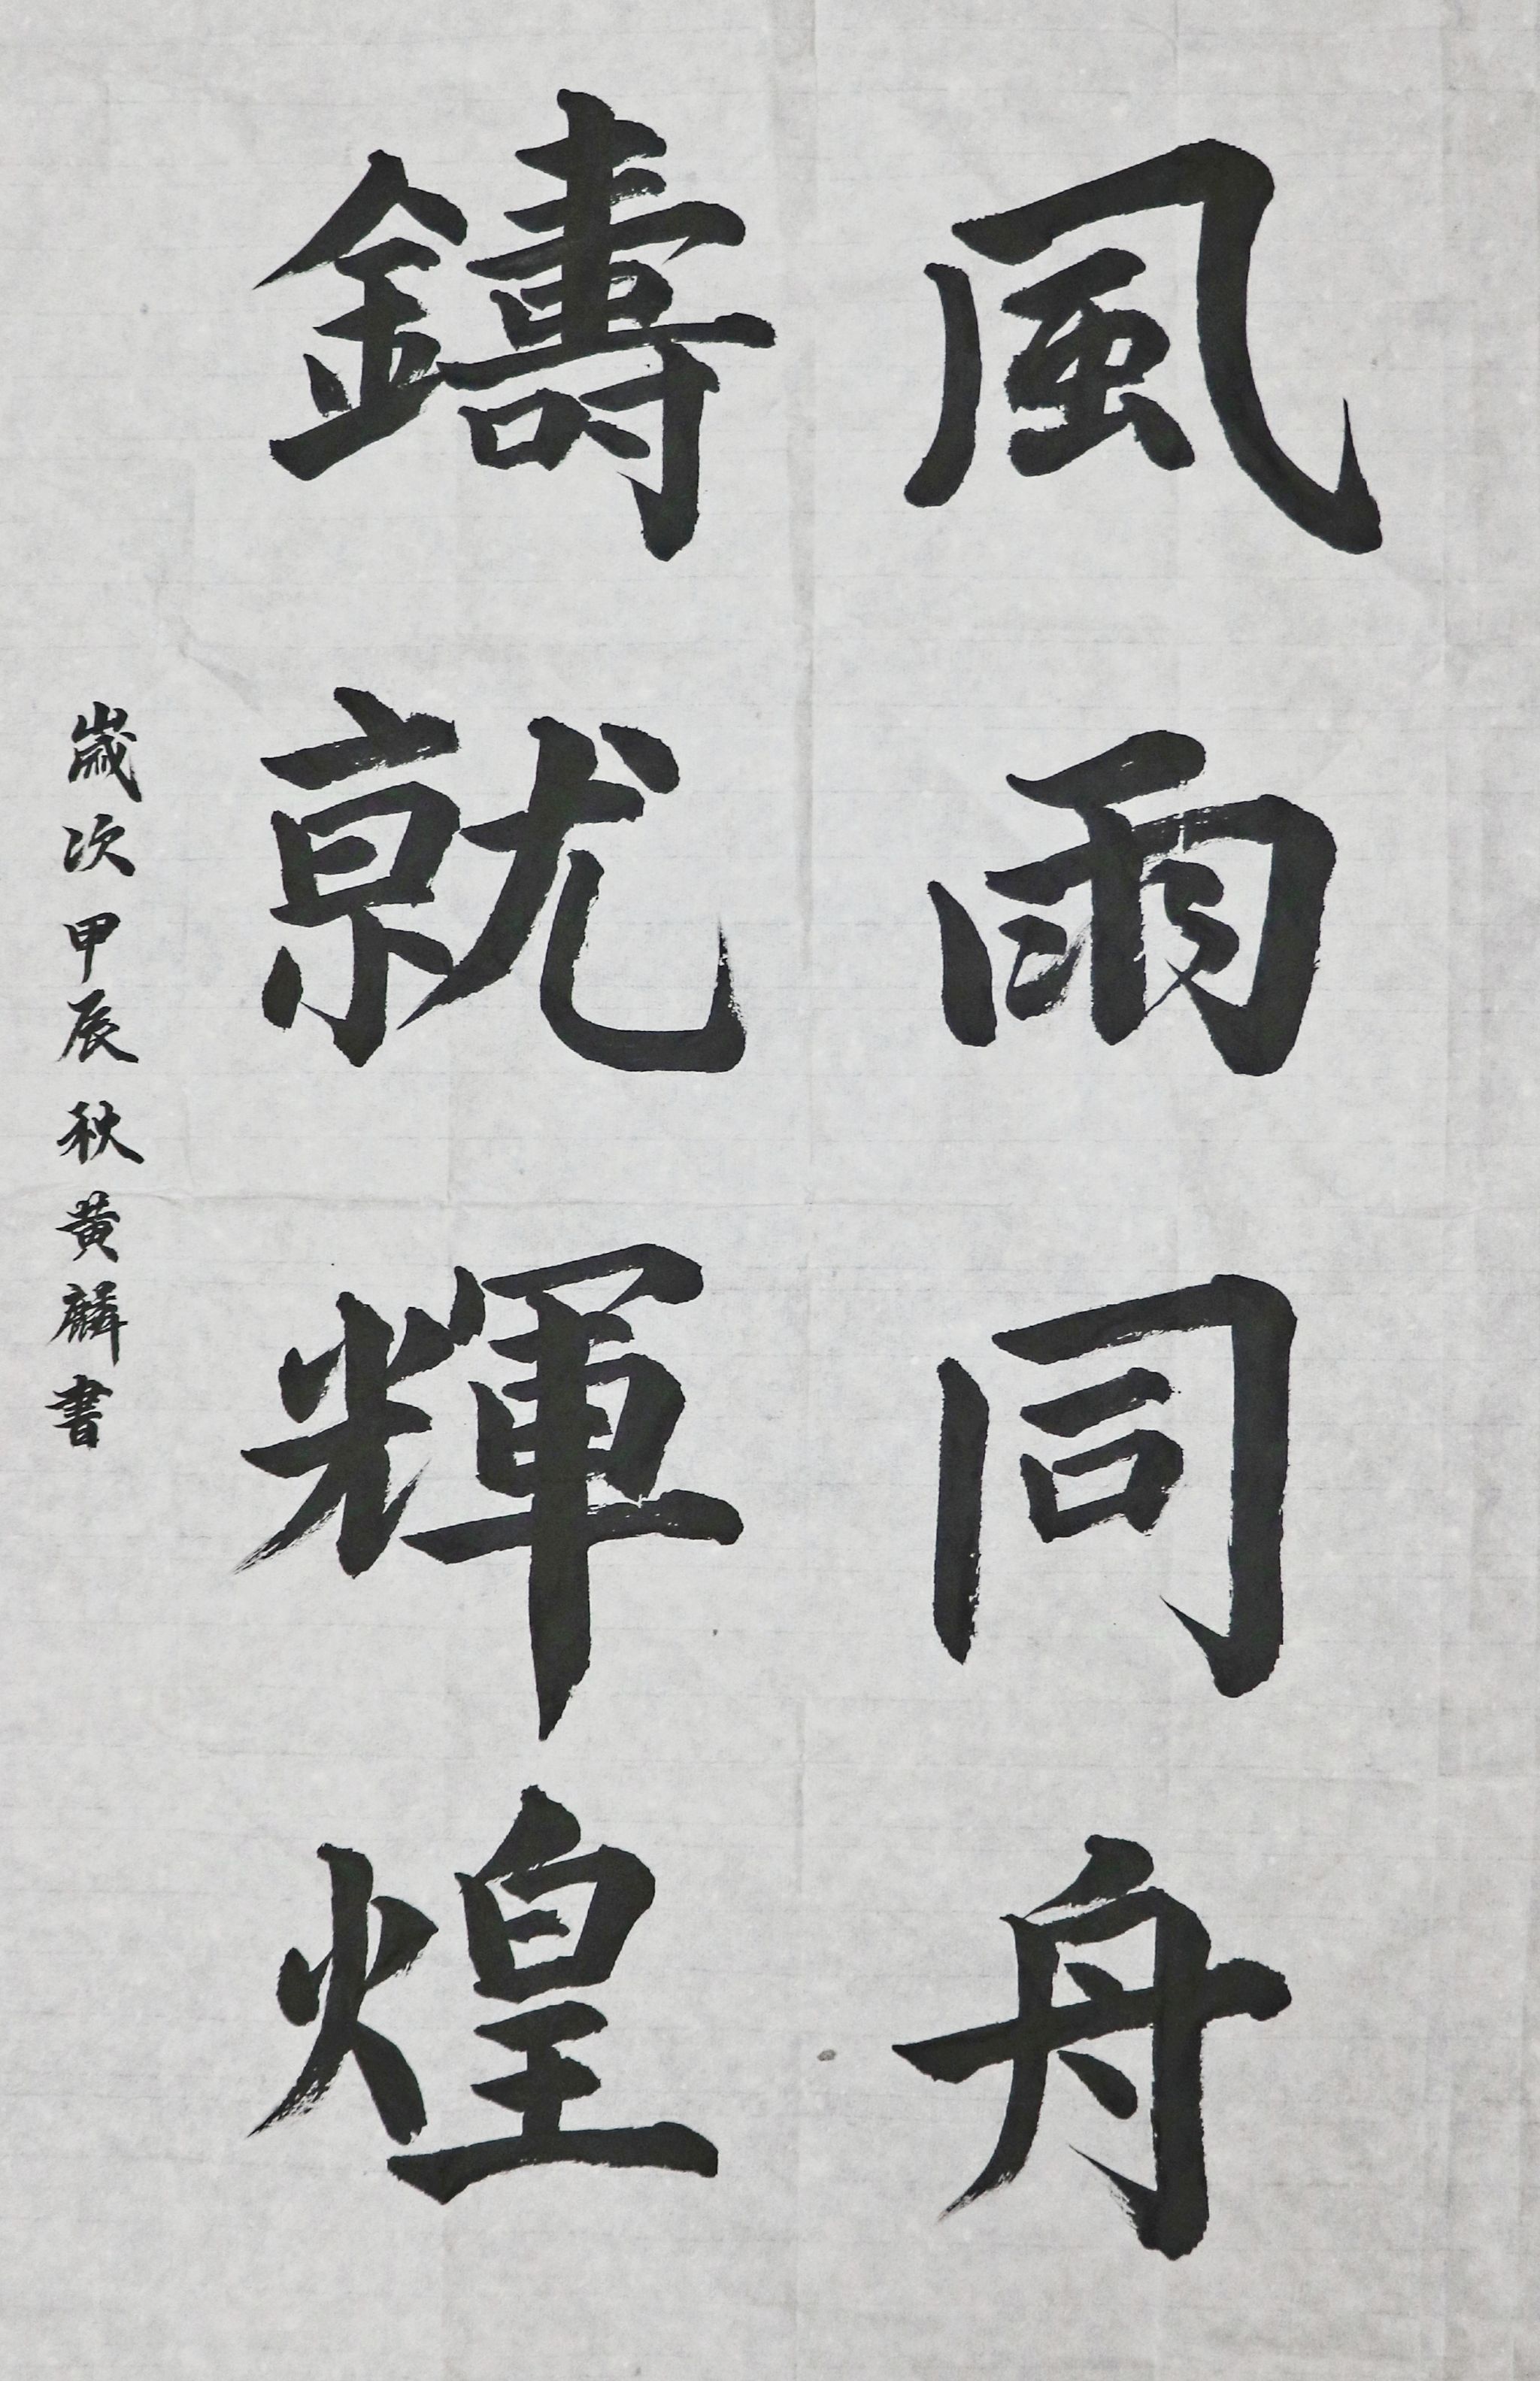 風雨同舟
鑄就輝煌
歲次甲辰秋黃麟書